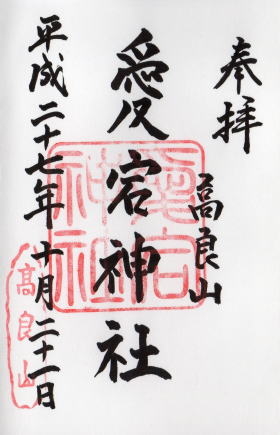 奉拝
高良山
愛宕神社
平成二十七年十月二十一日
愛宕
神社
髙良山